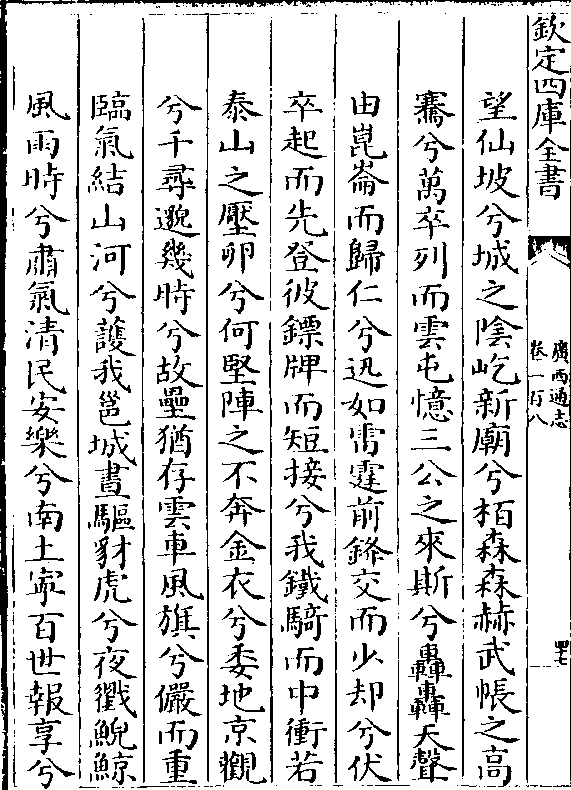 欽定四庫全書
廣西通志
卷一百八
望仙坡兮城之陰屹新廟兮栢森森赫武帳之高
騫兮萬卒列而雲屯憶三公之來斯兮轟轟天聲
由崑崙而歸仁兮迅如雷霆前鋒交而少却兮伏
卒起而先登彼鏢牌而短接兮我鐵騎而中衝若
泰山之壓卵兮何堅陣之不奔金衣兮委地京觀
兮千尋邈幾時兮故壘猶存雲車風旗兮儼而重
臨氣結山河兮護我邕城晝驅豺虎兮夜戮鯢鯨
風雨時兮肅氣清民安樂兮南土寧百世報享兮